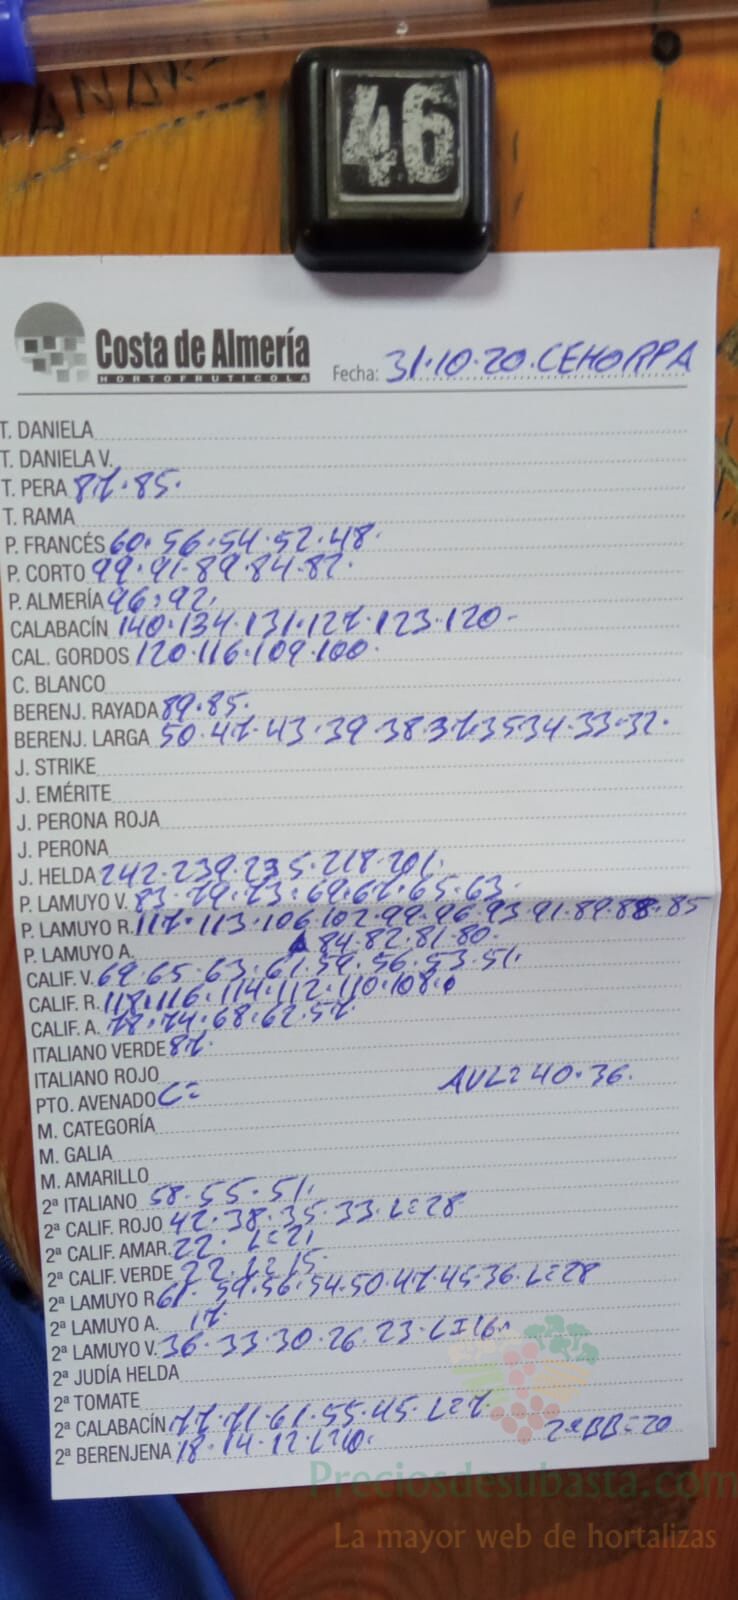 46
Costa de Almería
HORTOFRUTICOLA
Fecha: 31.10.20.CEHORPA
T. DANIELA
T. DANIELA V.
T. PERA 87.85.
T. RAMA
P. FRANCÉS 60.56.54.52.48.
P. CORTO 99.91.89.84.82.
P. ALMERÍA 96.92.
CALABACÍN 140.134.131.127.123.120-
CAL. GORDOS 120.116.109.100.
C. BLANCO
BERENJ. RAYADA 89.85.
BERENJ. LARGA 50.47.43.39.38.37.35.34.33.32.
J. STRIKE
J. EMÉRITE
J. PERONA ROJA
J. PERONA
J. HELDA 242.239.235.218.201.
P. LAMUYO V. 83.79.73.69.67.65.63.
P. LAMUYO R. 117.113.106.102.99.96.93.91.89.88.85
P. LAMUYO A. 84.82.81.80.
CALIF. V. 69.65.63.61.59.56.53.51.
CALIF. R. 118.116.114.112.110.108.
CALIF. A. 78.74.68.62.57.
ITALIANO VERDE 87.
ITALIANO ROJO
PTO. AVENADO C= AVL=40.36.
M. CATEGORÍA
M. GALIA
M. AMARILLO
2ª ITALIANO 58.55.51.
2ª CALIF. ROJO 42.38.35.33.L=28
2ª CALIF. AMAR. 22. L=21
2ª CALIF. VERDE 22. 15.
2ª LAMUYO R. 61.59.56.54.50.47.45.36.L=28
2ª LAMUYO A. 17.
2ª LAMUYO V. 36.33.30.26.23.L=16.
2ª JUDÍA HELDA
2ª TOMATE
2ª CALABACÍN 77.71.61.55.45.L=7.
2ª BERENJENA 18.14.12.L=10. 2ªBB=20
Preciosdesubasta.com
La mayor web de hortalizas